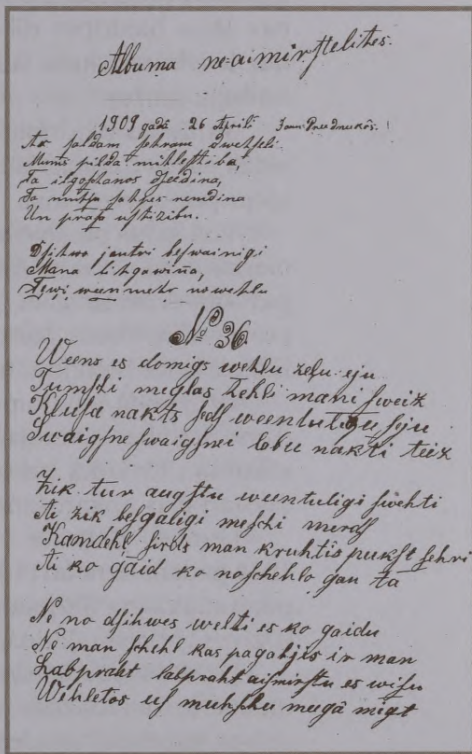 Albuma neaimirstelites.
1909 gadā 26 Aprilī
Ar saldam sehram dwehseli
Mums pilda mihlestiba,
Ta ilgoschanos dsedina,
Ta muhsu sehtes
Un prasa ustizibu.
Dsihwo jautri beswainigi
Mana lihgawiņa,
Tewi weenmehr nowehlu
№ 36
Weens es domigs wehlu zeļu eju
Tumschi meglas tehli mani sweiz
Klusa nakts seds weentuligu seju
Swaigsne swaigsnei labu nakti teiz
Zik tur augstu weentuligi swehti
Ai zik besgaligi meschi murd
Kamdehl sirds man kruhtis pukst sehri
Ai ko gaid ko noschehlo gan ta
Ne no dsihwes welti es ko gaidu
Ne man schehl kas pagahjis ir man
Labpraht labpraht aismirstu es wisu
Wehletos us muhschu meegā migt